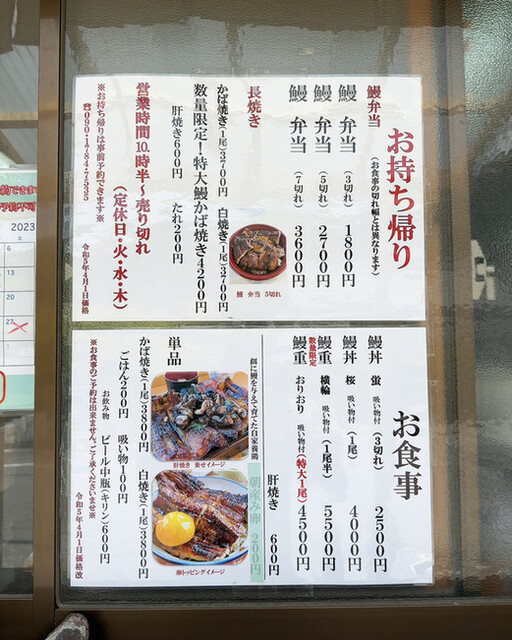 お持ち帰り
(お食事の切れ幅とは異なります)
鰻弁当
鰻 弁当 (3切れ) 1800円
鰻 弁当 (5切れ) 2700円
鰻 弁当 (7切れ) 3600円
鰻 弁当 5切れ
長焼き
かば焼き(1尾)3700円 白焼き(1尾)3700円
数量限定!特大鰻かば焼き4200円
肝焼き600円 たれ200円
営業時間10.時半~売り切れ
(定休日・火・水・木)
※お持ち帰りは事前予約できます※
☎090-1784-7535
令和5年4月1日価格
お食事
鰻丼 蛍 吸い物付(3切れ) 2500円
鰻丼 桜 吸い物付(1尾) 4000円
鰻重 横輪 吸い物付(1尾半) 5500円
数量限定
鰻重 おりおり 吸い物付(特大1尾)4500円
肝焼き 600円
餌に鰻を与えて育てた自家養鶏
朝産み卵 200円
肝焼き 乗せイメージ
卵トッピングイメージ
単品
かば焼き(1尾)3800円 白焼き(1尾)3800円
ごはん200円 吸い物100円
お飲み物 ビール中瓶(キリン)600円
※お食事のご予約は出来ません。ご了承くださいませ※
令和5年4月1日価格改
2023
土
6
13
20
27